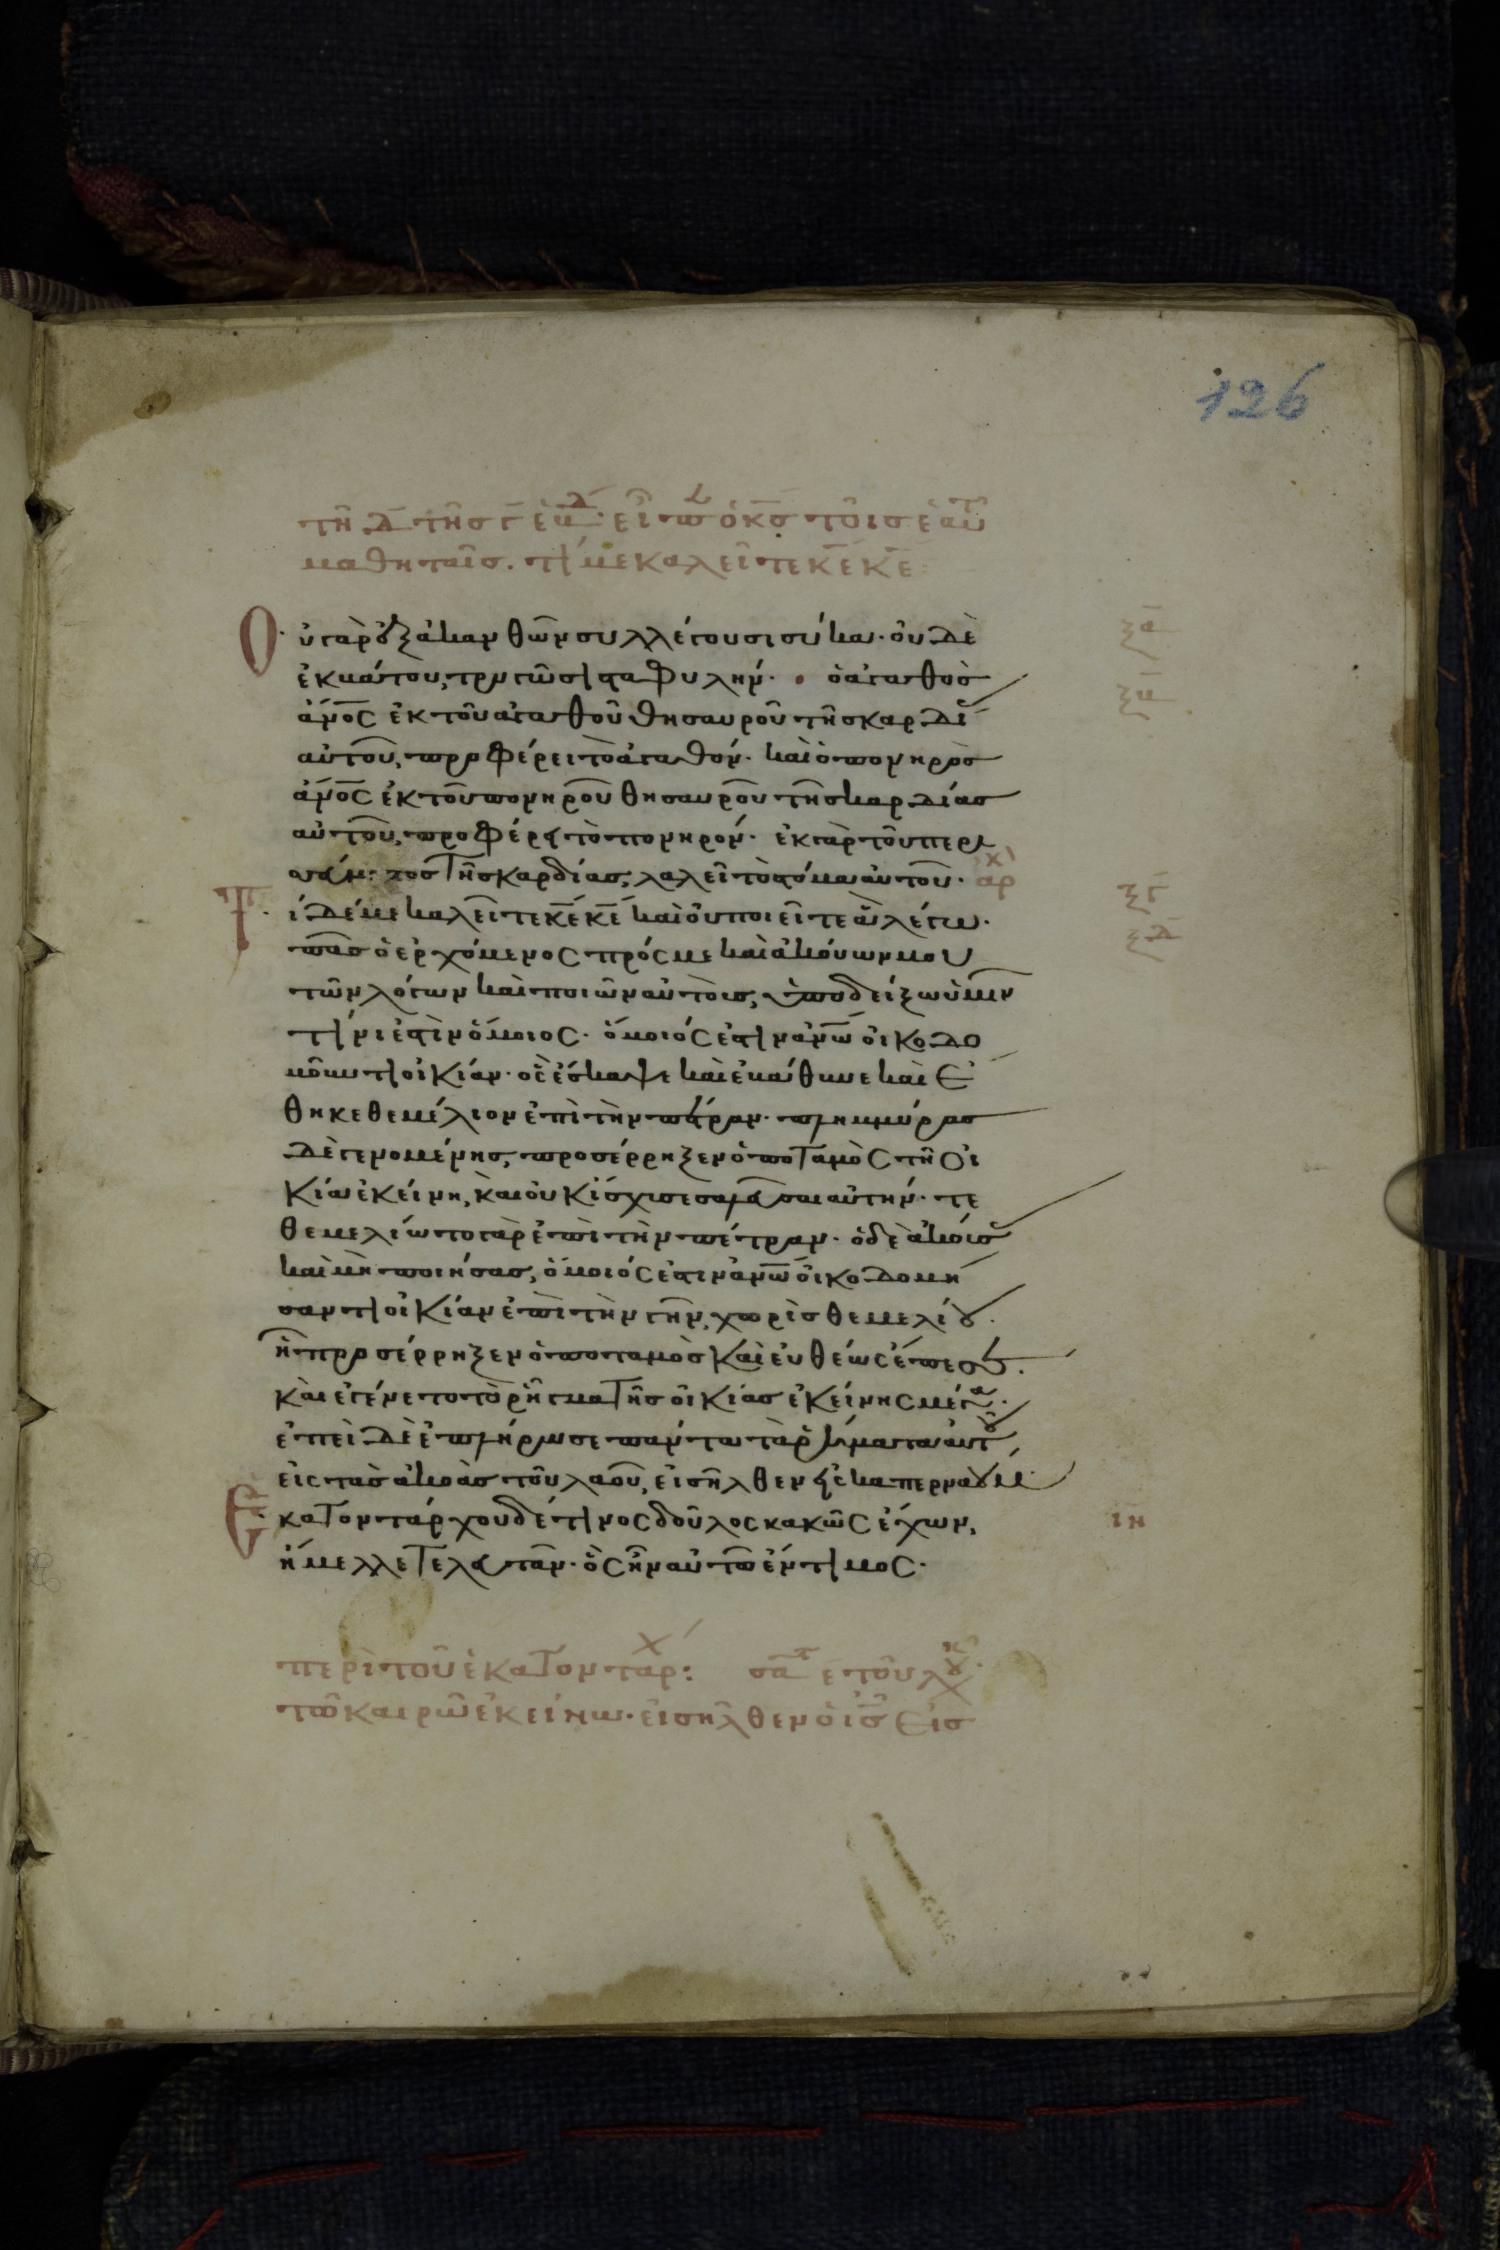 126
τῆ δ τῆς γ ἑβδ. εἶπ ὁ κς τοῖς ἑαυτ
μαθηταῖς. τί με καλεῖτε κε κε
Οὐ γὰρ ἐξ ἀκανθῶν συλλέγουσι σύκα. οὐδὲ
ἐκ βάτου, τρυγῶσι σταφυλήν. ὁ ἀγαθὸς
ἀνος ἐκ τοῦ ἀγαθοῦ θησαυροῦ τῆς καρδί
αὐτοῦ, προφέρει τὸ ἀγαθόν. καὶ ὁ πονηρὸς
ἀνος ἐκ τοῦ πονηροῦ θησαυροῦ τῆς καρδίας
αὐτοῦ, προφέρει τὸ πονηρόν. ἐκ γὰρ τοῦ περι
τος τῆς καρδίας, λαλεῖ τὸ στόμα αὐτοῦ. αρχ
Τί δέ με καλεῖτε κε κε καὶ οὐ ποιεῖτε ἃ λέγω.
πᾶς ὁ ἐρχόμενος πρός με καὶ ἀκούων μου
τῶν λόγων καὶ ποιῶν αὐτοὺς, ὑποδείξω ὑμῖν
τίνι ἐστὶν ὅμοιος. ὅμοιός ἐστιν ἀνω οἰκοδο
μοῦντι οἰκίαν. ὃς ἔσκαψε καὶ ἐβάθυνε καὶ ἔ
θηκε θεμέλιον ἐπὶ τὴν πέτραν. πλημμύρας
δὲ γενομένης, προσέρρηξεν ὁ ποταμὸς τῆ οἰ
κία ἐκείνη, καὶ οὐκ ἴσχυσε σαλεῦσαι αὐτήν. τε
θεμελίωτο γὰρ ἐπὶ τὴν πέτραν. ὁ δὲ ἀκούσ
καὶ μὴ ποιήσας, ὅμοιός ἐστιν ἀνω οἰκοδομή
σαντι οἰκίαν ἐπὶ τὴν γῆν, χωρὶς θεμελίου.
ἧ προσέρρηξεν ὁ ποταμὸς καὶ εὐθέως ἔπεσεν.
καὶ ἐγένετο τὸ ρῆγμα τῆς οἰκίας ἐκείνης μέγα.
ἐπεὶ δὲ ἐπλήρωσε πάντα τὰ ῥήματα αὐτοῦ,
εἰς τὰς ἀκοὰς τοῦ λαοῦ, εἰσῆλθεν εἰς καπερναούμ.
Ἑκατοντάρχου δέ τινος δοῦλος κακῶς ἔχων,
ἤμελλε τελευτᾶν. ὃς ἦν αὐτῶ ἔντιμος.
περὶ τοῦ ἑκατοντάρχ: σα ε τοῦ λουκ.
τῶ καιρῶ ἐκείνω. εἰσῆλθεν ὁ ις εἰς
ξγ
ξδ
ιη